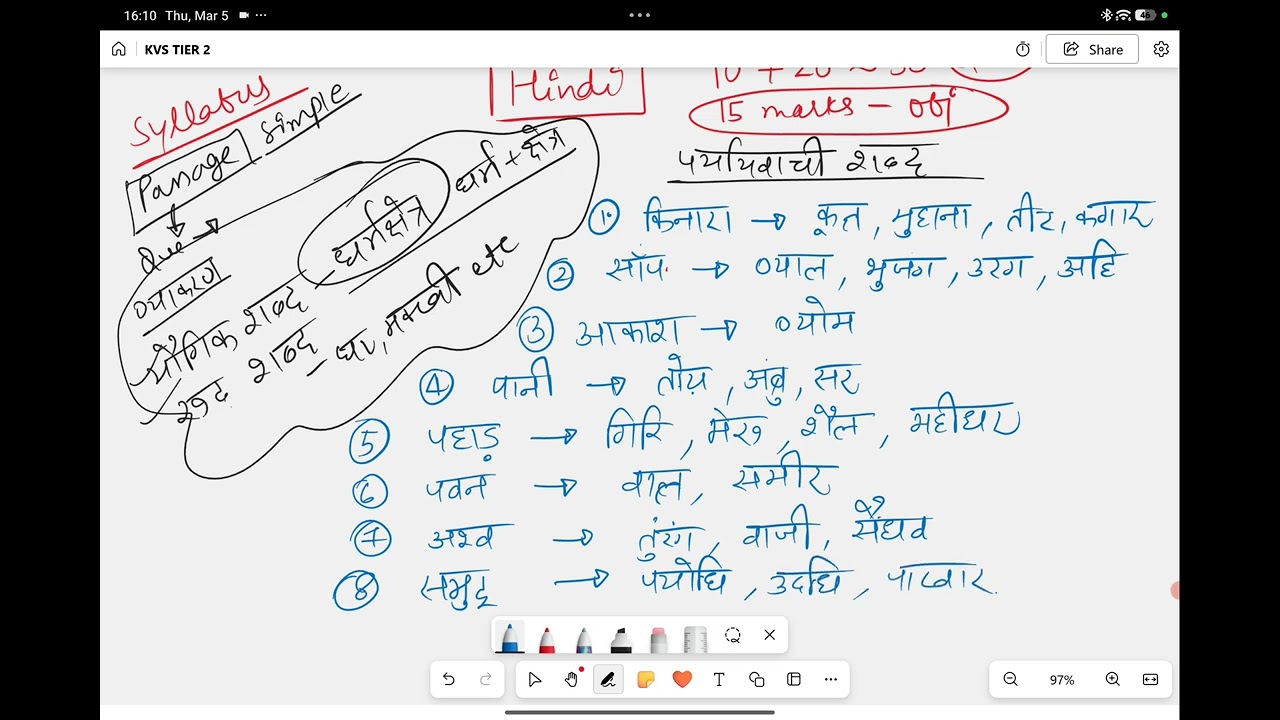 16:10 Thu, Mar 5
46
KVS TIER 2
Share
Syllabus
Hindi
15 marks - obj
Passage simple
Que
व्याकरण
धर्मक्षेत्र धर्म + क्षेत्र
यौगिक शब्द
रूढ़ शब्द - घर, मक्खी etc
पर्यायवाची शब्द
① किनारा → कूल, मुहाना, तीर, कगार
② साँप → व्याल, भुजंग, उरग, अहि
③ आकाश → व्योम
④ पानी → तोय, अंबु, सर
⑤ पहाड़ → गिरि, मेरु, शैल, महीधर
⑥ पवन → वात, समीर
⑦ अश्व → तुरंग, वाजी, सैंधव
⑧ समुद्र → पयोधि, उदधि, पारावार
97%